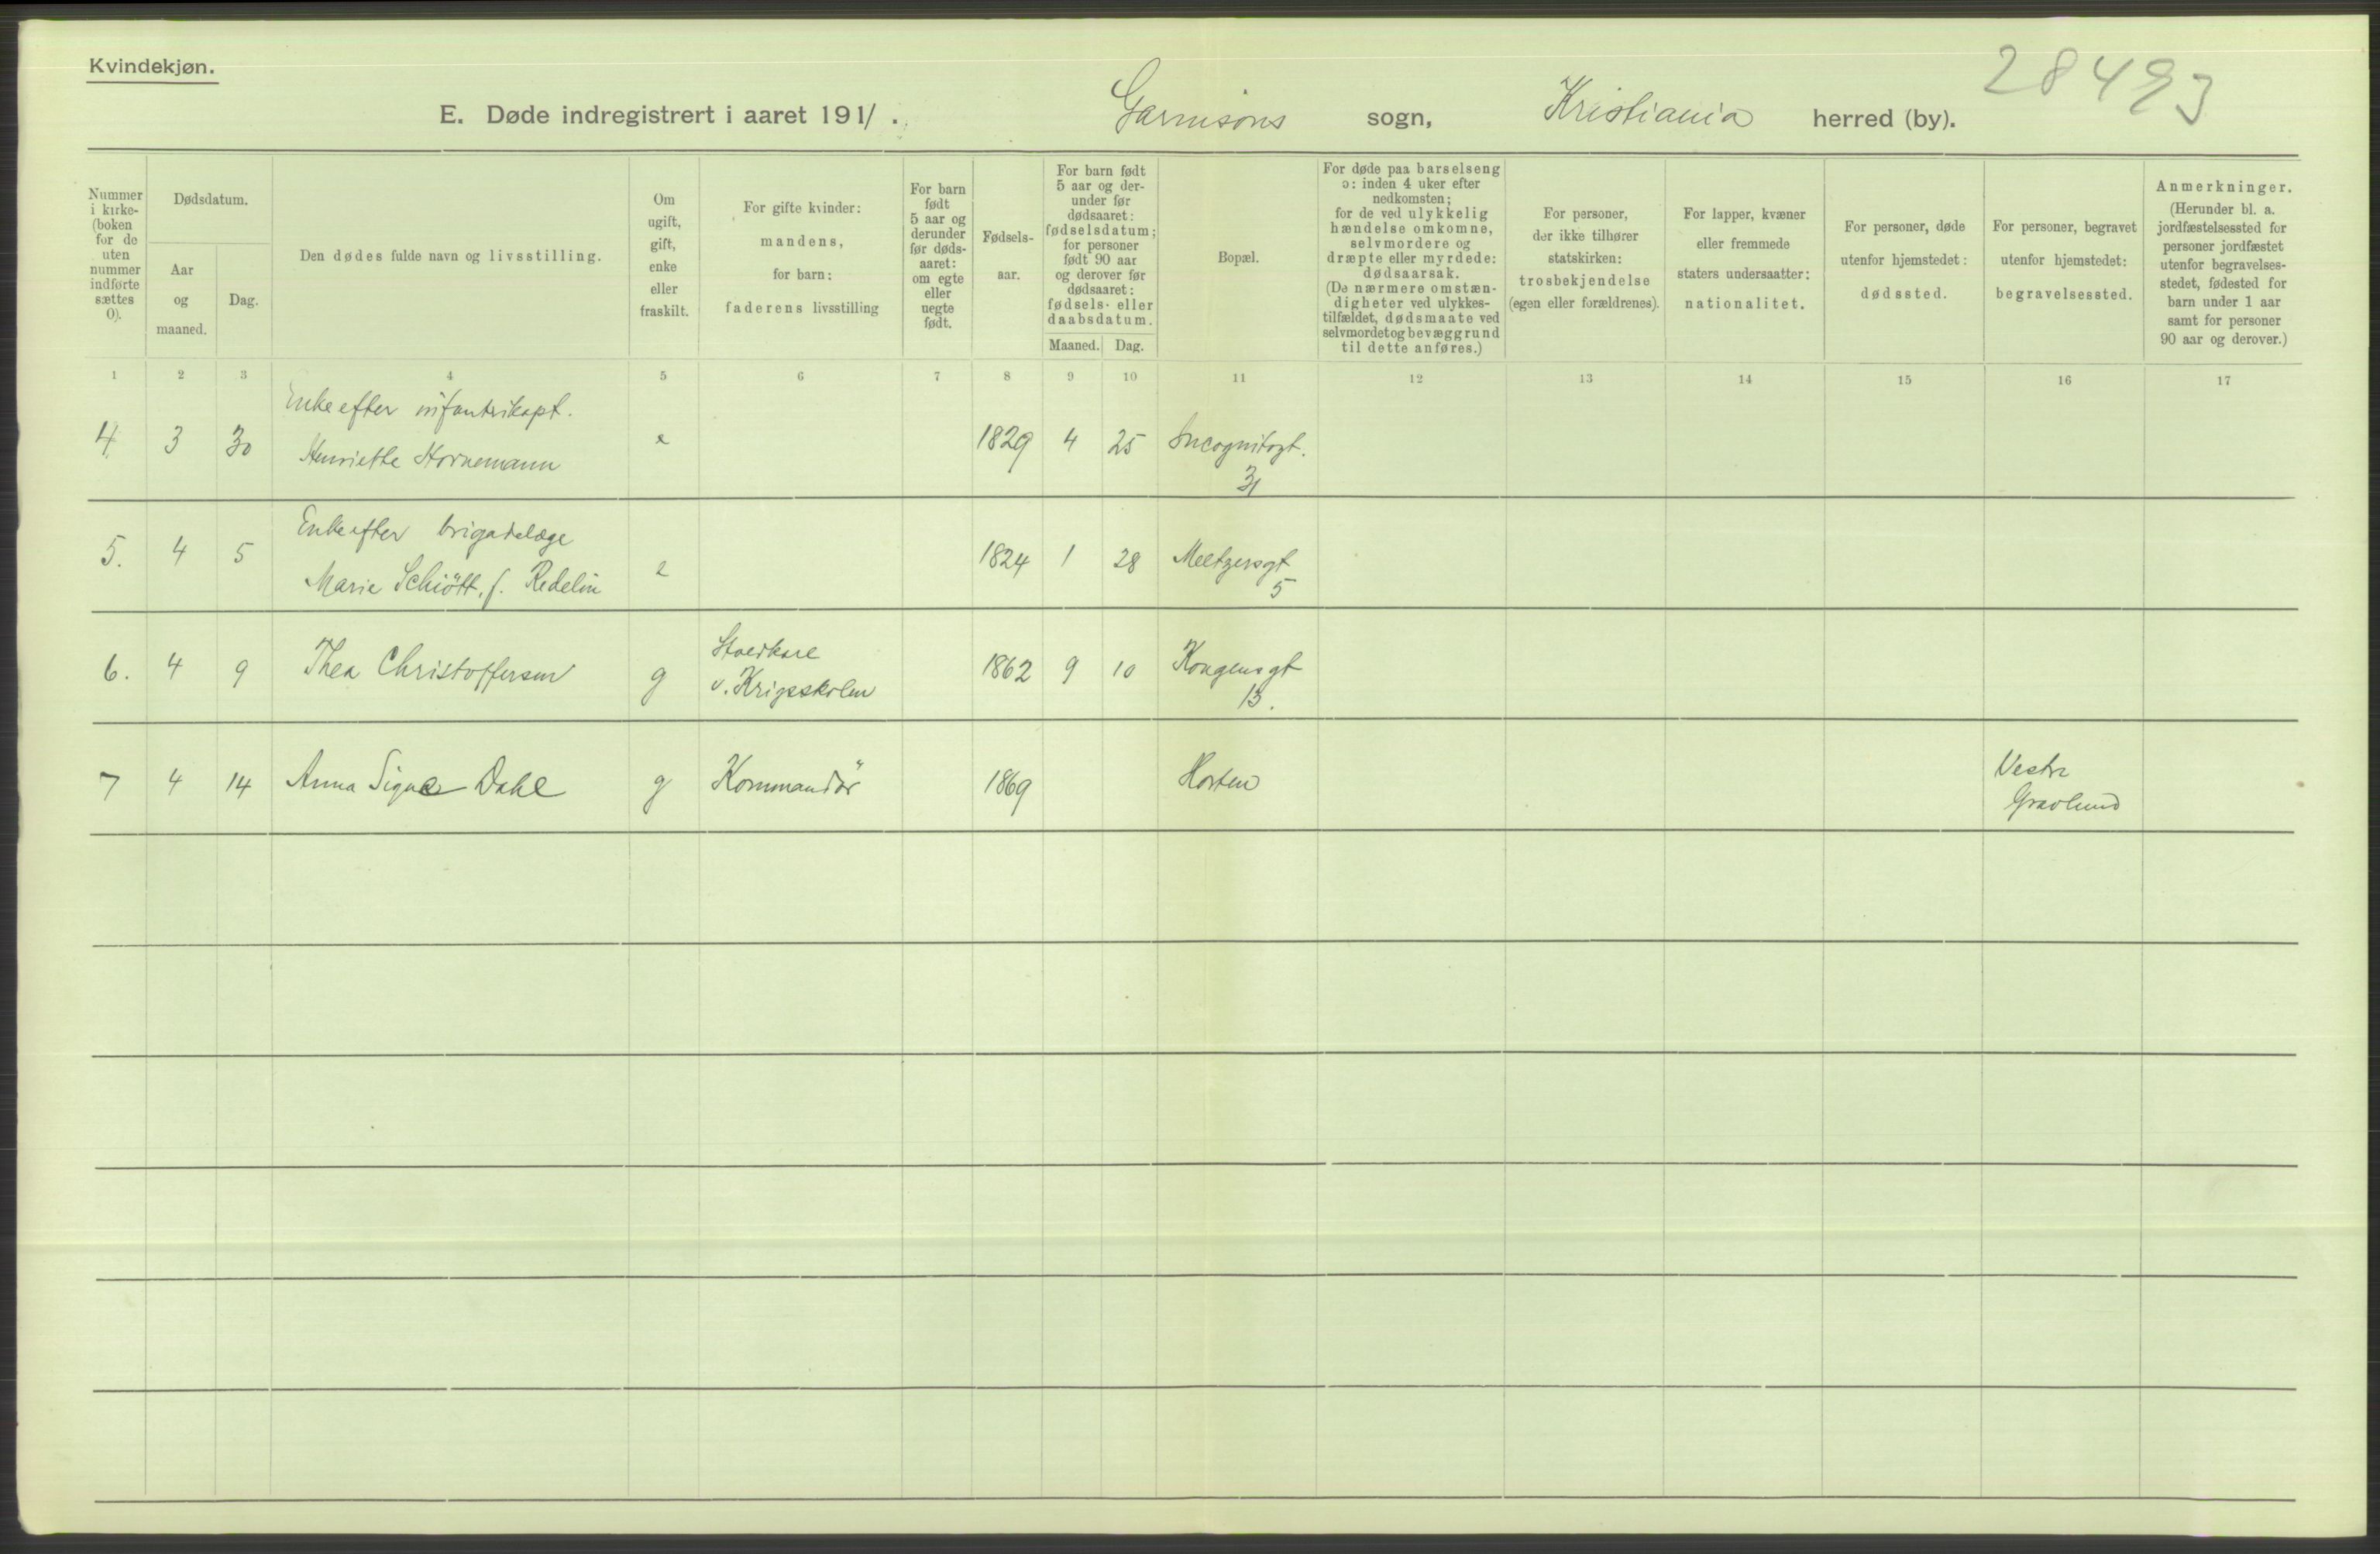 Kvindekjøn.
28493
E. Døde indregistrert i aaret 1911. Garnisons sogn, Kristiania herred (by).
Nummer i kirke- (boken for de uten nummer indførte sættes 0).
Dødsdatum.
Aar og maaned.
Dag.
Den dødes fulde navn og livsstilling.
Om ugift, gift, enke eller fraskilt.
For gifte kvinder: mandens, for barn: faderens livsstilling
For barn født 5 aar og derunder før døds- aaret: om egte eller uegte født.
Fødsels- aar.
For barn født 5 aar og der- under før dødsaaret: fødselsdatum; for personer født 90 aar og derover før dødsaaret: fødsels- eller daabsdatum.
Maaned. Dag.
Bopæl.
For døde paa barselseng ɔ: inden 4 uker efter nedkomsten; for de ved ulykkelig hændelse omkomne, selvmordere og dræpte eller myrdede: dødsaarsak. (De nærmere omstæn- digheter ved ulykkes- tilfældet, dødsmaate ved selvmordet og bevæggrund til dette anføres.)
For personer, der ikke tilhører statskirken: trosbekjendelse (egen eller forældrenes).
For lapper, kvæner eller fremmede staters undersaatter: nationalitet.
For personer, døde utenfor hjemstedet: dødssted.
For personer, begravet utenfor hjemstedet: begravelsessted.
Anmerkninger. (Herunder bl. a. jordfæstelsessted for personer jordfæstet utenfor begravelses- stedet, fødested for barn under 1 aar samt for personer 90 aar og derover.)
1 2 3 4 5 6 7 8 9 10 11 12 13 14 15 16 17
Enke efter infantrikapt.
4 3 30 Henriette Hornemann e 1829 4 25 Incognitogt.
31
Enke efter brigadelæge
5. 4 5 Marie Schiött, f. Redelin e 1824 1 28 Meltzersgt
5
Staldkarl
6. 4 9 Thea Christoffersen g v. Krigsskolen 1862 9 10 Kongensgt
13.
7 4 14 Anna Signe Dahl g Kommandör 1869 Horten Vestre
Gravlund